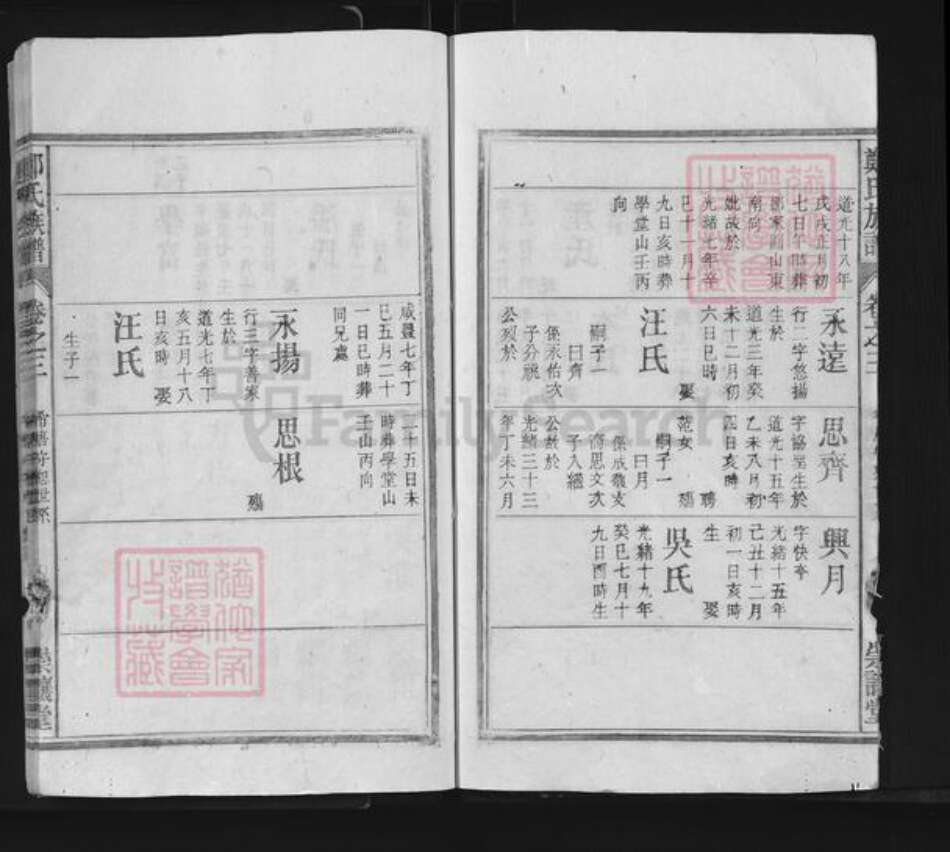 鄭氏族譜
卷之三
崇讓堂
道光十八年
戊戌正月初
七日午時葬
鄧家園山東
南向
妣歿於
光緒七年辛
巳十一月十
九日亥時葬
學堂山壬丙
向
永遠
行二字悠揚
生於
道光三年癸
未十二月初
六日巳時
娶
汪氏
嗣子一
曰齊
係永佑次
子分祧
公歿於
咸豐七年丁
巳五月二十
一日巳時葬
同兄處
永揚
行三字善家
生於
道光七年丁
亥五月十八
日亥時
娶
汪氏
生子一
思齊
字協聖生於
道光十五年
乙未八月初
四日亥時
聘
范女
殤
嗣子一
曰月
係成發支
思文次
子入繼
公歿於
光緒三十三
年丁未六月
二十五日未
時葬學堂山
壬山丙向
思根
殤
興月
字快亭
光緒十五年
己丑十二月
初一日亥時
生
娶
吳氏
光緒十九年
癸巳七月十
九日酉時生
鄭氏族譜
卷之三
世系
崇讓堂
FamilySearch
譜學會
收藏